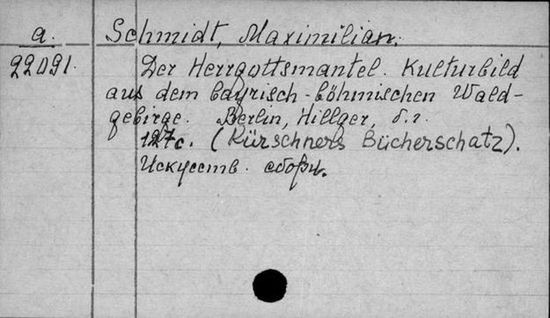 a. Schmidt, Maximilian.
22091. Der Herrgottsmantel. Kulturbild
aus dem bayrisch-böhmischen Wald-
gebirge. Berlin, Hillger, б.г.
127с. (Kürschners Bücherschatz).
Искусств. сборн.